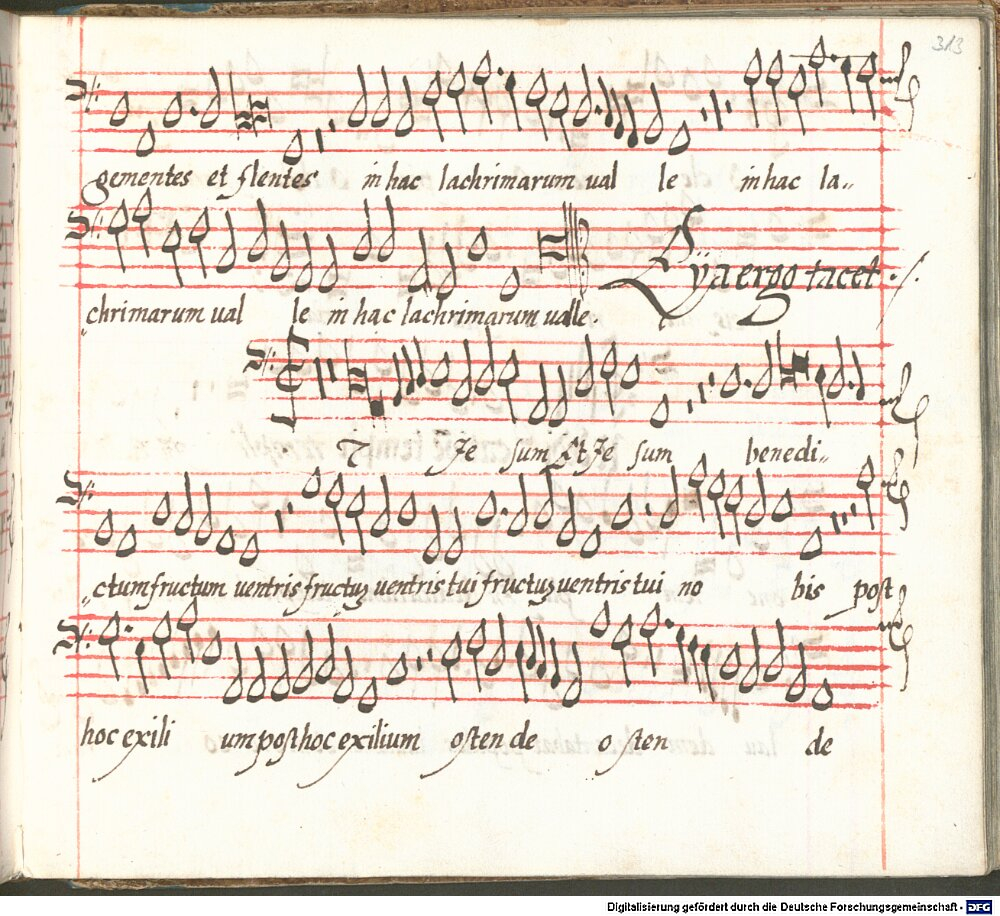 313
gementes et flentes in hac lachrimarum val le in hac la„
chrimarum val le in hac lachrimarum valle
Eÿa ergo tacet
ET Jesum Et Je sum benedi„
„ctum fructum ventris fructuʒ ventris tui fructuʒ ventris tui no bis post
hoc exili um post hoc exilium osten de o sten de
Digitalisierung gefördert durch die Deutsche Forschungsgemeinschaft - DFG